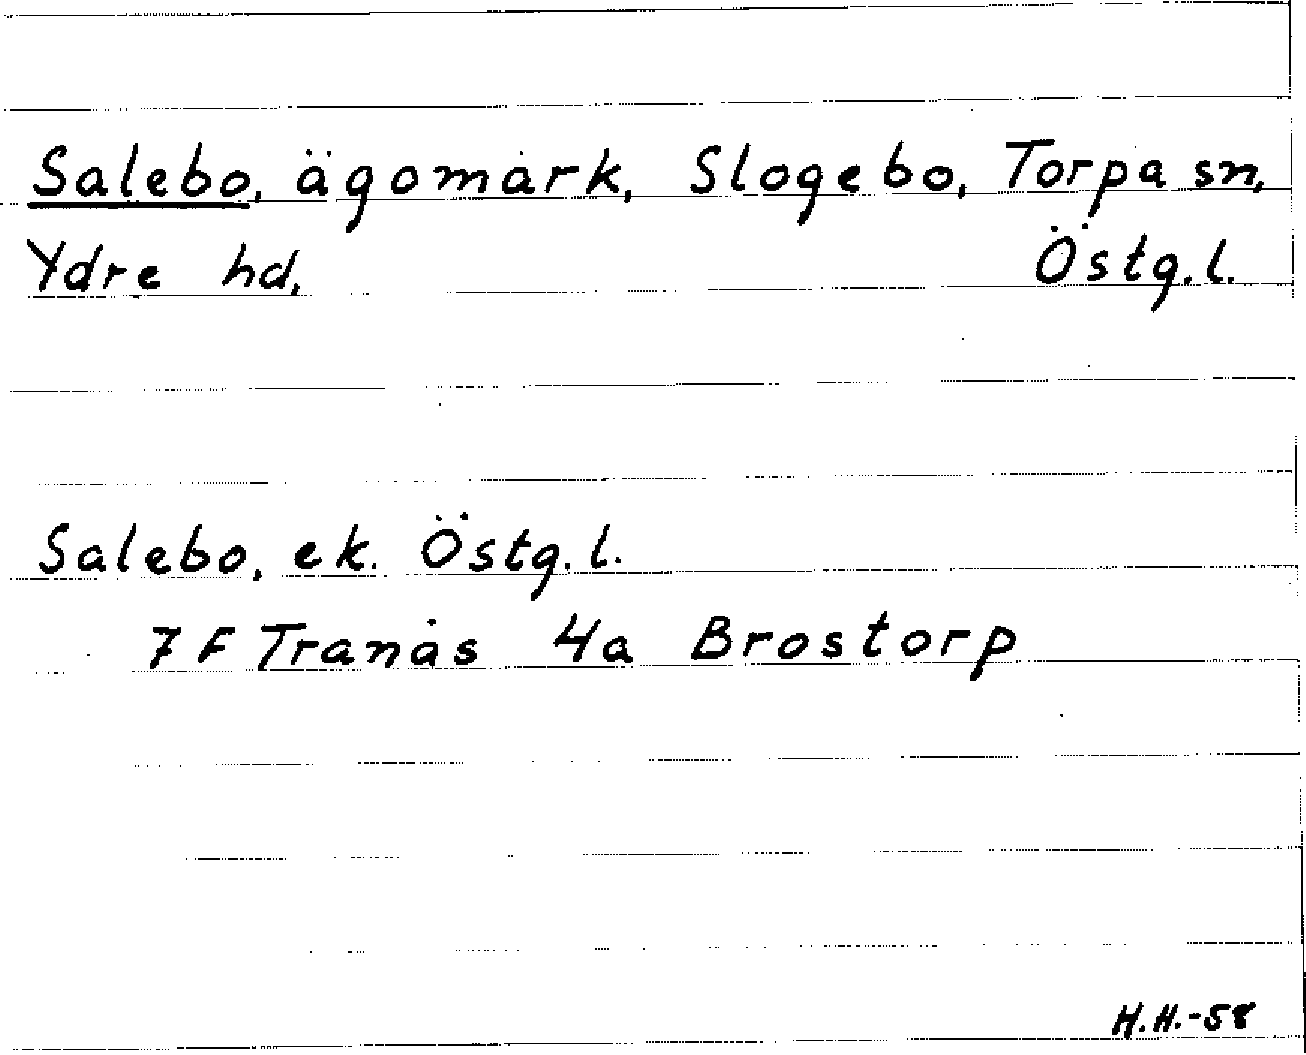 Salebo, ägomark, Slogebo, Torpa sn,
Ydre hd, Östg.l.
Salebo, ek. Östg.l.
7F Tranås 4a Brostorp
H.H.-58